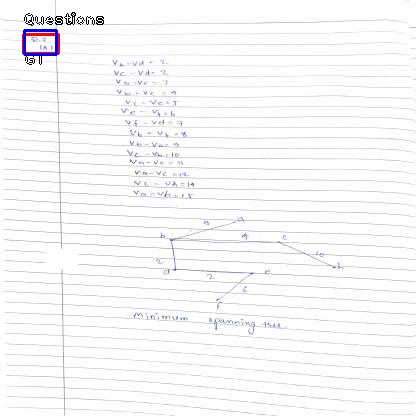 Questions
Q1
Vb - Vd = 2
Vc - Vd = 2
Vb - Ve = 3
Vb - Vc = 4
Vc - Ve = 5
Ve - Vf = 6
Vf - Vd = 7
Vb - Vf = 8
Vb - Va = 9
Vc - Vh = 10
Va - Ve = 11
Va - Vc = 12
Vc - Vh = 14
Va - Vh = 15
9 a
b 4 c
2 10
h
d 2 e
6
f
minimum spanning tree.